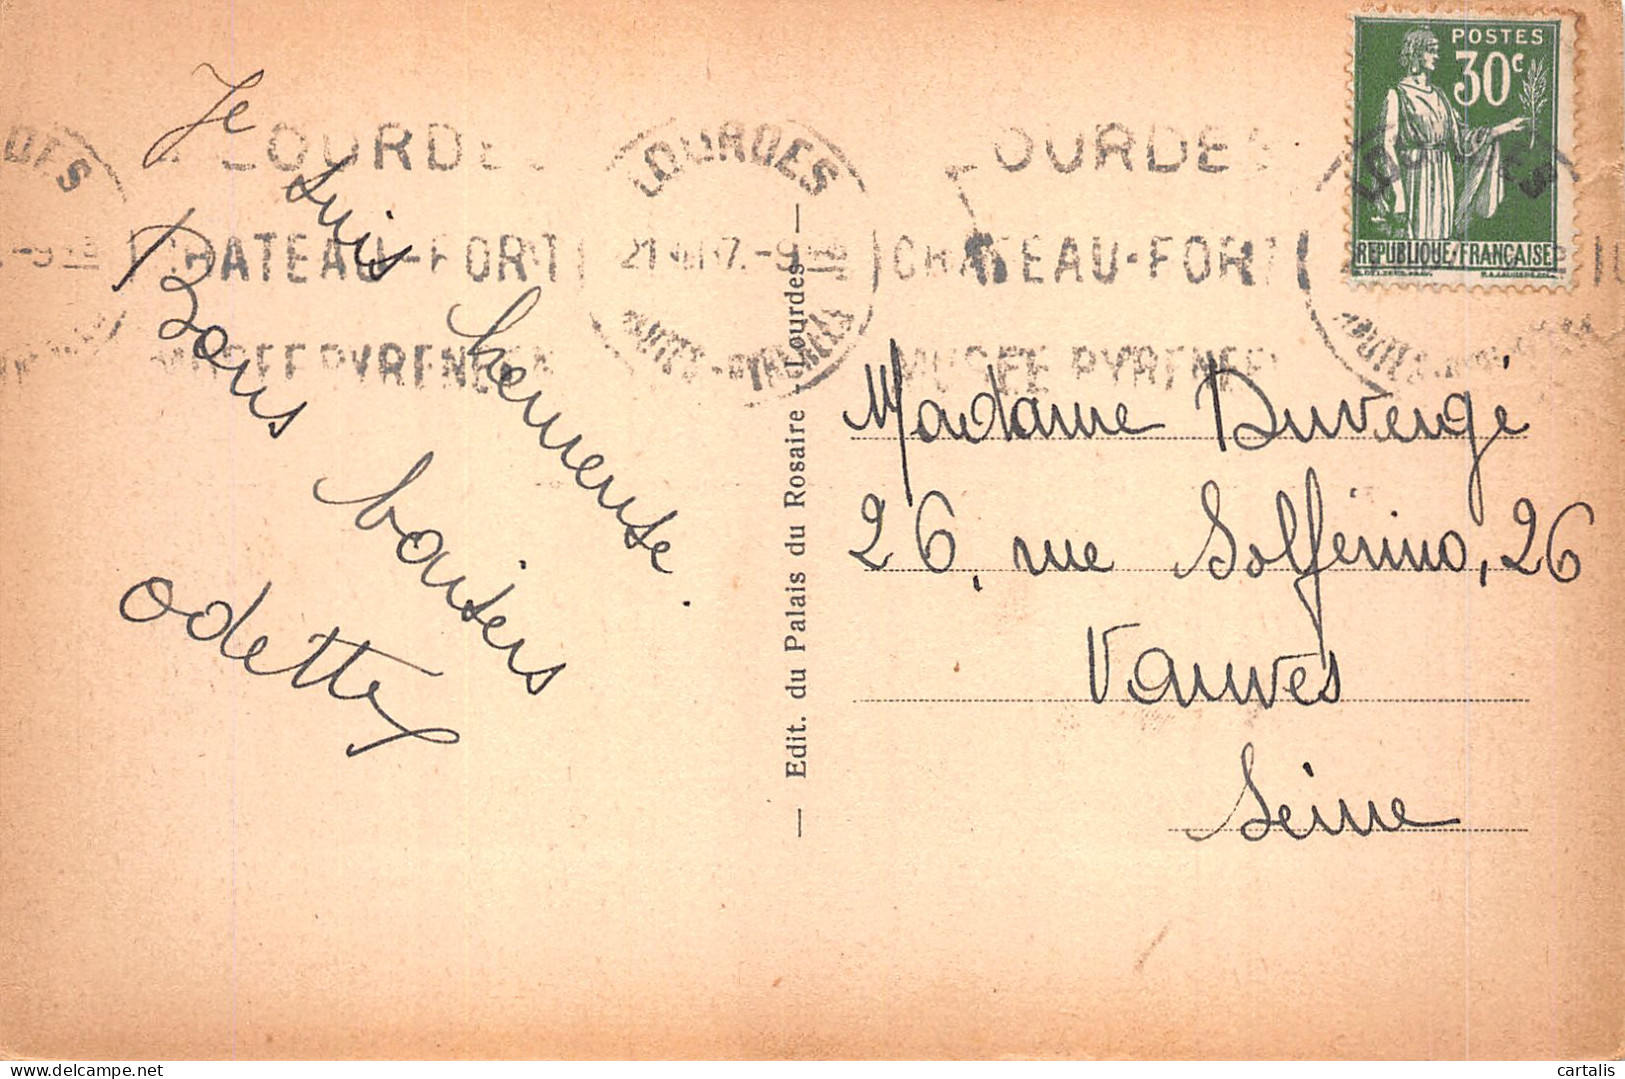 Je suis heureuse.
Bons baisers
Odette
POSTES
30c
REPUBLIQUE FRANÇAISE
LOURDES
CHATEAU-FORT
MUSEE PYRENEEN
LOURDES
HAUTES-PYRENEES
LOURDES
CHATEAU-FORT
MUSEE PYRENEEN
LOURDES
— Edit. du Palais du Rosaire - Lourdes —
Madame Duvergé
26, rue Solférino, 26
Vanves
Seine
delcampe.net
cartalis